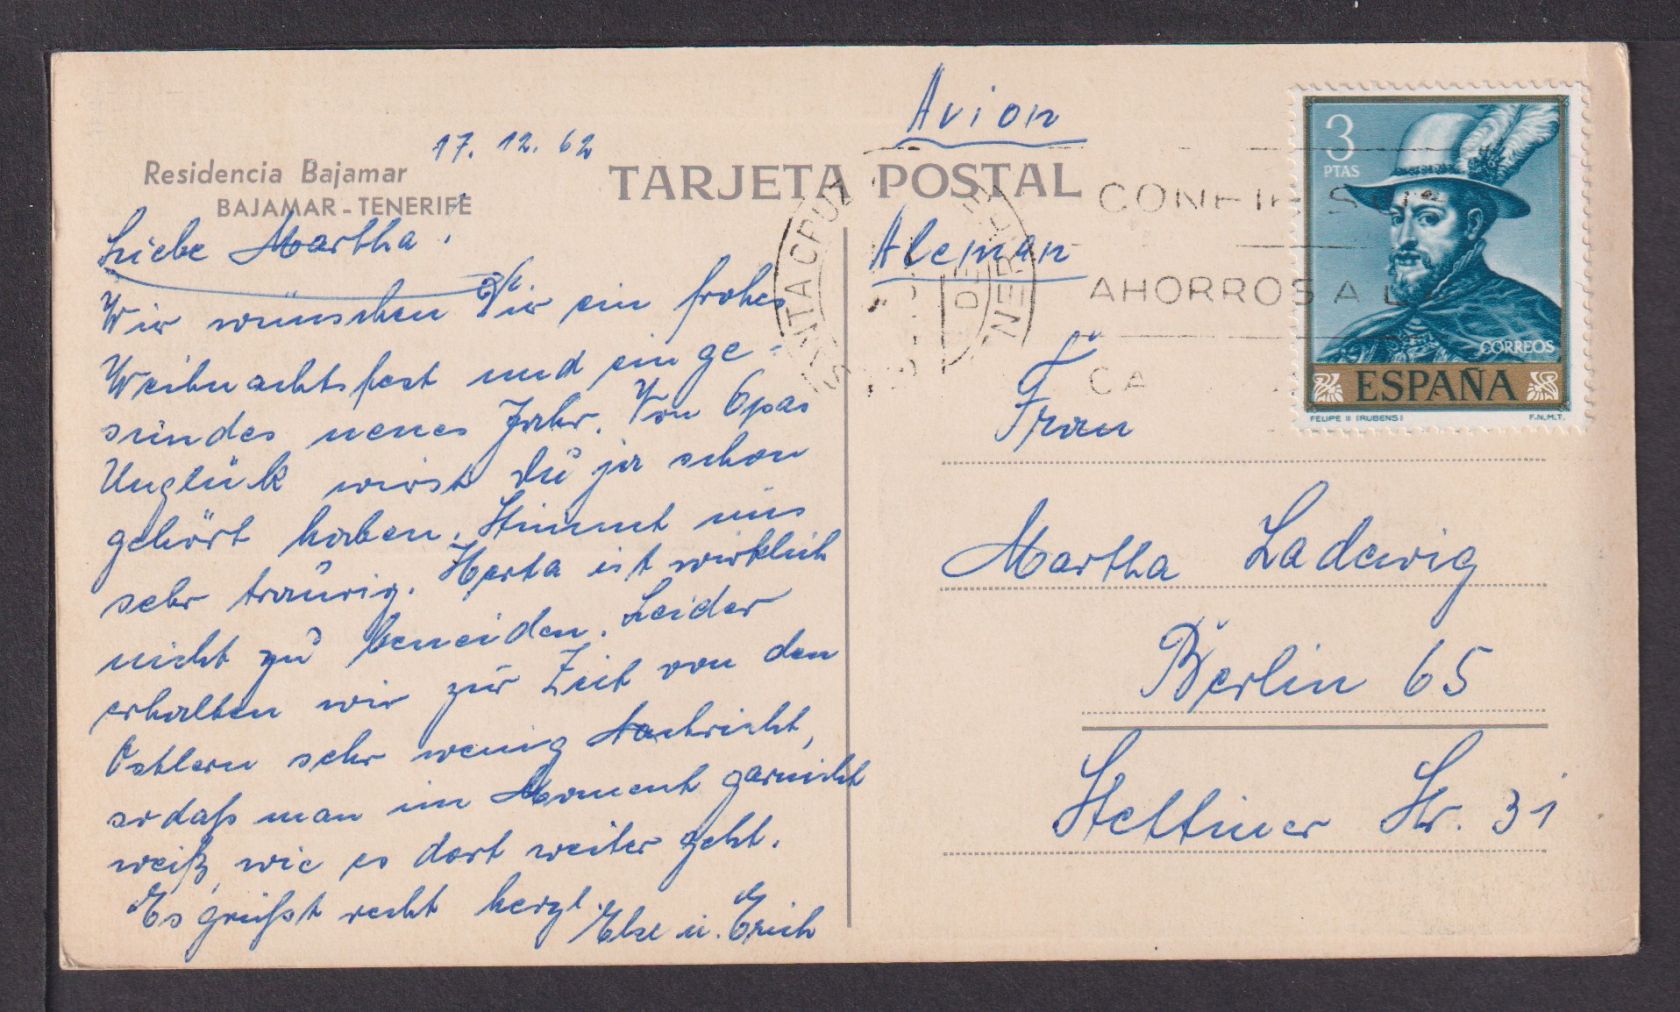 17. 12. 62
Residencia Bajamar
BAJAMAR - TENERIFE
Liebe Martha!
Wir wünschen Dir ein frohes
Weihnachtsfest und ein ge-
sundes neues Jahr. Von Opas
Unglück wirst Du ja schon
gehört haben. Stimmt uns
sehr traurig. Herta ist wirklich
nicht zu beneiden. Leider
erhalten wir zur Zeit von den
Ostlern sehr wenig Nachricht,
sodaß man im Moment garnicht
weiß, wie es dort weiter geht.
Es grüßt recht herzl.
Else u. Erich
TARJETA POSTAL
Avion
Aleman
SANTA CRUZ
DE
TENERIFE
AHORROS A L
CA
3
PTAS
CORREOS
ESPAÑA
FELIPE II (RUBENS)
F.N.M.T.
Frau
Martha Ladewig
Berlin 65
Stettiner Str. 31